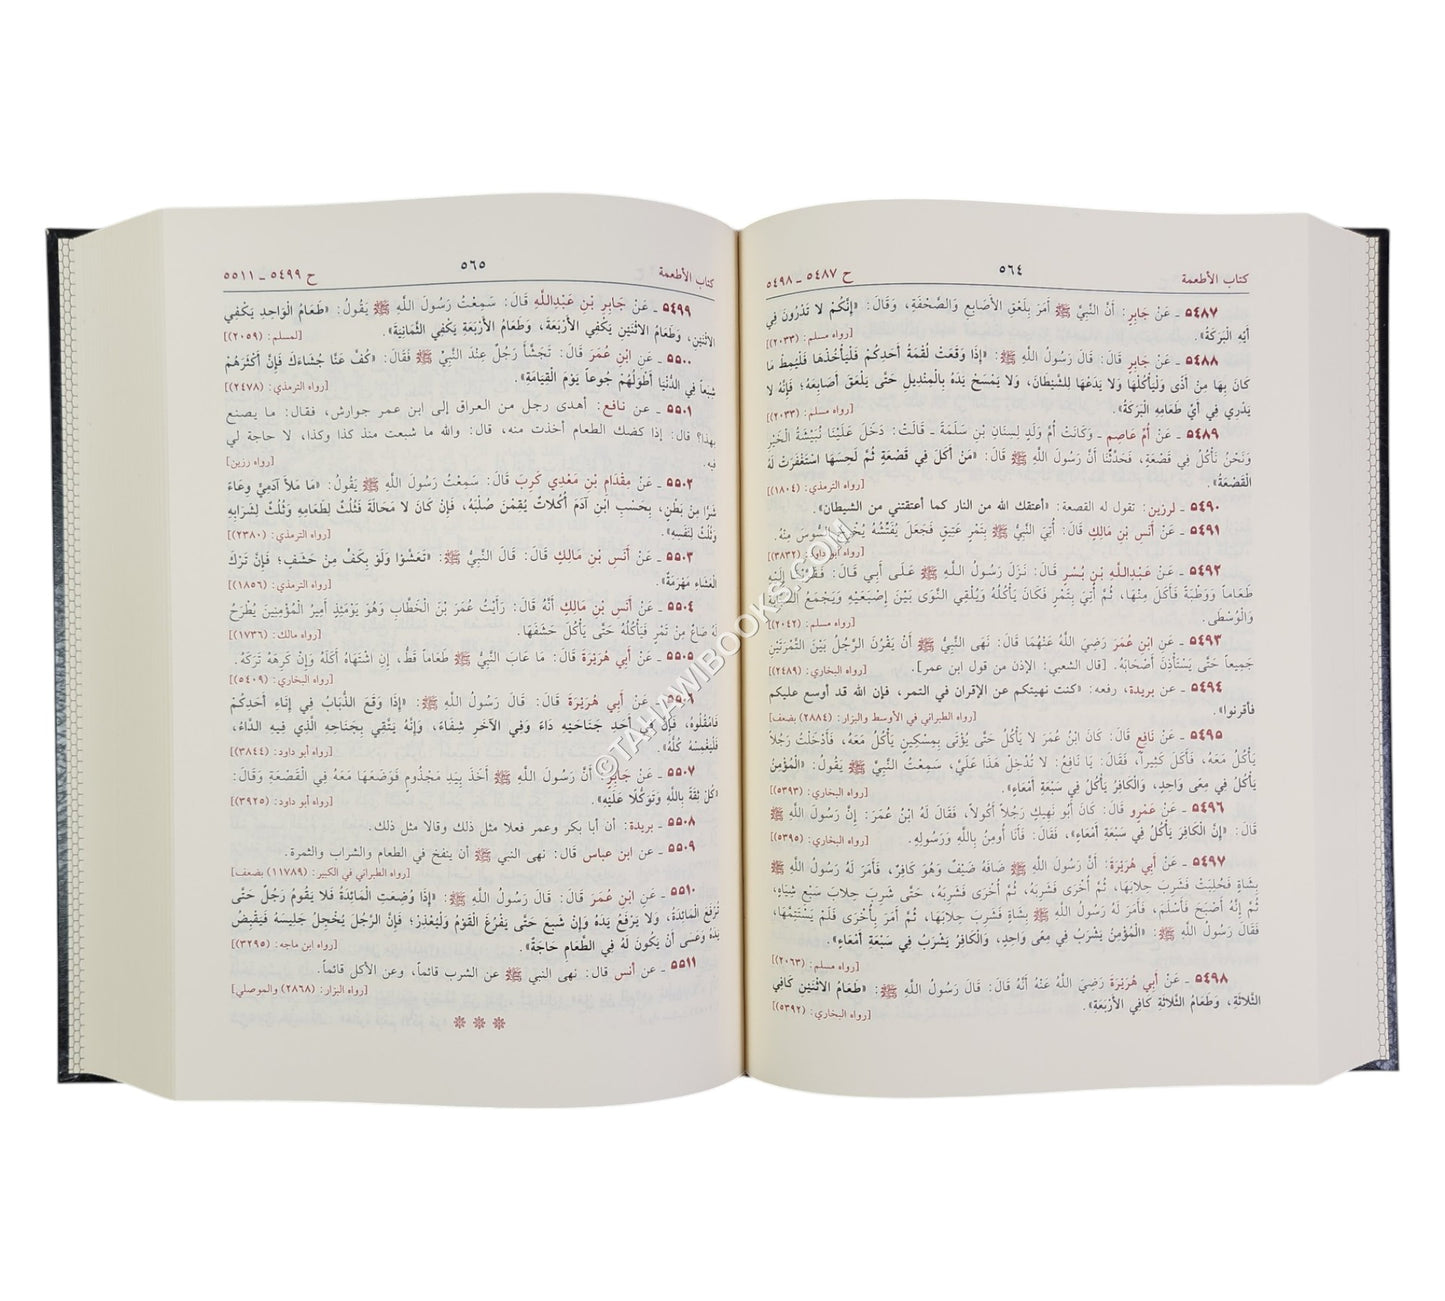 كتاب الأطعمة ٥٦٤ ح ٥٤٨٧ ـ ٥٤٩٨
٥٤٨٧ ـ عَنْ جَابِرٍ: أَنَّ النَّبِيَّ ﷺ أَمَرَ بِلَعْقِ الأَصَابِعِ وَالصَّحْفَةِ، وَقَالَ: «إِنَّكُمْ لا تَدْرُونَ فِي
أَيِّهِ الْبَرَكَةُ». [رواه مسلم: (٢٠٣٣)]
٥٤٨٨ ـ عَنْ جَابِرٍ قَالَ: قَالَ رَسُولُ اللَّهِ ﷺ: «إِذَا وَقَعَتْ لُقْمَةُ أَحَدِكُمْ فَلْيَأْخُذْهَا فَلْيُمِطْ مَا
كَانَ بِهَا مِنْ أَذًى وَلْيَأْكُلْهَا وَلا يَدَعْهَا لِلشَّيْطَانِ، وَلا يَمْسَحْ يَدَهُ بِالْمِنْدِيلِ حَتَّى يَلْعَقَ أَصَابِعَهُ؛ فَإِنَّهُ لا
يَدْرِي فِي أَيِّ طَعَامِهِ الْبَرَكَةُ». [رواه مسلم: (٢٠٣٣)]
٥٤٨٩ ـ عَنْ أُمِّ عَاصِمٍ ـ وَكَانَتْ أُمَّ وَلَدٍ لِسِنَانِ بْنِ سَلَمَةَ ـ قَالَتْ: دَخَلَ عَلَيْنَا نُبَيْشَةُ الْخَيْرِ
وَنَحْنُ نَأْكُلُ فِي قَصْعَةٍ، فَحَدَّثَنَا أَنَّ رَسُولَ اللَّهِ ﷺ قَالَ: «مَنْ أَكَلَ فِي قَصْعَةٍ ثُمَّ لَحِسَهَا اسْتَغْفَرَتْ لَهُ
الْقَصْعَةُ». [رواه الترمذي: (١٨٠٤)]
٥٤٩٠ ـ لرزين: تقول له القصعة: «أعتقك الله من النار كما أعتقتني من الشيطان».
٥٤٩١ ـ عَنْ أَنَسِ بْنِ مَالِكٍ قَالَ: أُتِيَ النَّبِيُّ ﷺ بِتَمْرٍ عَتِيقٍ فَجَعَلَ يُفَتِّشُهُ يُخْرِجُ السُّوسَ مِنْهُ.
[رواه أبو داود: (٣٨٣٢)]
٥٤٩٢ ـ عَنْ عَبْدِاللَّهِ بْنِ بُسْرٍ قَالَ: نَزَلَ رَسُولُ اللَّهِ ﷺ عَلَى أَبِي قَالَ: فَقَرَّبْنَا إِلَيْهِ
طَعَاماً وَوَطْبَةً فَأَكَلَ مِنْهَا، ثُمَّ أُتِيَ بِتَمْرٍ فَكَانَ يَأْكُلُهُ وَيُلْقِي النَّوَى بَيْنَ إِصْبَعَيْهِ وَيَجْمَعُ السَّبَّابَةَ
وَالْوُسْطَى. [رواه مسلم: (٢٠٤٢)]
٥٤٩٣ ـ عَنِ ابْنِ عُمَرَ رَضِيَ اللَّهُ عَنْهُمَا قَالَ: نَهَى النَّبِيُّ ﷺ أَنْ يَقْرُنَ الرَّجُلُ بَيْنَ التَّمْرَتَيْنِ
جَمِيعاً حَتَّى يَسْتَأْذِنَ أَصْحَابَهُ. [قال الشعبي: الإذن من قول ابن عمر]. [رواه البخاري: (٢٤٨٩)]
٥٤٩٤ ـ عن بريدة، رفعه: «كنت نهيتكم عن الإقران في التمر، فإن الله قد أوسع عليكم
فأقرنوا». [رواه الطبراني في الأوسط والبزار: (٢٨٨٤) بضعف]
٥٤٩٥ ـ عَنْ نَافِعٍ قَالَ: كَانَ ابْنُ عُمَرَ لا يَأْكُلُ حَتَّى يُؤْتَى بِمِسْكِينٍ يَأْكُلُ مَعَهُ، فَأَدْخَلْتُ رَجُلاً
يَأْكُلُ مَعَهُ، فَأَكَلَ كَثِيراً، فَقَالَ: يَا نَافِعُ: لا تُدْخِلْ هَذَا عَلَيَّ، سَمِعْتُ النَّبِيَّ ﷺ يَقُولُ: «الْمُؤْمِنُ
يَأْكُلُ فِي مِعًى وَاحِدٍ، وَالْكَافِرُ يَأْكُلُ فِي سَبْعَةِ أَمْعَاءٍ». [رواه البخاري: (٥٣٩٣)]
٥٤٩٦ ـ عَنْ عَمْرٍو قَالَ: كَانَ أَبُو نَهِيكٍ رَجُلاً أَكُولاً، فَقَالَ لَهُ ابْنُ عُمَرَ: إِنَّ رَسُولَ اللَّهِ ﷺ
قَالَ: «إِنَّ الْكَافِرَ يَأْكُلُ فِي سَبْعَةِ أَمْعَاءٍ»، فَقَالَ: فَأَنَا أُومِنُ بِاللَّهِ وَرَسُولِهِ. [رواه البخاري: (٥٣٩٥)]
٥٤٩٧ ـ عَنْ أَبِي هُرَيْرَةَ: أَنَّ رَسُولَ اللَّهِ ﷺ ضَافَهُ ضَيْفٌ وَهُوَ كَافِرٌ، فَأَمَرَ لَهُ رَسُولُ اللَّهِ ﷺ
بِشَاةٍ فَحُلِبَتْ فَشَرِبَ حِلابَهَا، ثُمَّ أُخْرَى فَشَرِبَهُ، ثُمَّ أُخْرَى فَشَرِبَهُ، حَتَّى شَرِبَ حِلابَ سَبْعِ شِيَاهٍ،
ثُمَّ إِنَّهُ أَصْبَحَ فَأَسْلَمَ، فَأَمَرَ لَهُ رَسُولُ اللَّهِ ﷺ بِشَاةٍ فَشَرِبَ حِلابَهَا، ثُمَّ أَمَرَ بِأُخْرَى فَلَمْ يَسْتَتِمَّهَا،
فَقَالَ رَسُولُ اللَّهِ ﷺ: «الْمُؤْمِنُ يَشْرَبُ فِي مِعًى وَاحِدٍ، وَالْكَافِرُ يَشْرَبُ فِي سَبْعَةِ أَمْعَاءٍ».
[رواه مسلم: (٢٠٦٣)]
٥٤٩٨ ـ عَنْ أَبِي هُرَيْرَةَ رَضِيَ اللَّهُ عَنْهُ أَنَّهُ قَالَ: قَالَ رَسُولُ اللَّهِ ﷺ: «طَعَامُ الاثْنَيْنِ كَافِي
الثَّلاثَةِ، وَطَعَامُ الثَّلاثَةِ كَافِي الأَرْبَعَةِ». [رواه البخاري: (٥٣٩٢)]
كتاب الأطعمة ٥٦٥ ح ٥٤٩٩ ـ ٥٥١١
٥٤٩٩ ـ عَنْ جَابِرِ بْنِ عَبْدِاللَّهِ قَالَ: سَمِعْتُ رَسُولَ اللَّهِ ﷺ يَقُولُ: «طَعَامُ الْوَاحِدِ يَكْفِي
الاثْنَيْنِ، وَطَعَامُ الاثْنَيْنِ يَكْفِي الأَرْبَعَةَ، وَطَعَامُ الأَرْبَعَةِ يَكْفِي الثَّمَانِيَةَ». [لمسلم: (٢٠٥٩)]
٥٥٠٠ ـ عَنِ ابْنِ عُمَرَ قَالَ: تَجَشَّأَ رَجُلٌ عِنْدَ النَّبِيِّ ﷺ فَقَالَ: «كُفَّ عَنَّا جُشَاءَكَ فَإِنَّ أَكْثَرَهُمْ
شِبَعاً فِي الدُّنْيَا أَطْوَلُهُمْ جُوعاً يَوْمَ الْقِيَامَةِ». [رواه الترمذي: (٢٤٧٨)]
٥٥٠١ ـ عن نافع: أهدى رجل من العراق إلى ابن عمر جوارش، فقال: ما يصنع
بهذا؟ قال: إذا كضك الطعام أخذت منه، قال: والله ما شبعت منذ كذا وكذا، لا حاجة لي
فيه. [رواه رزين]
٥٥٠٢ ـ عَنْ مِقْدَامِ بْنِ مَعْدِي كَرِبَ قَالَ: سَمِعْتُ رَسُولَ اللَّهِ ﷺ يَقُولُ: «مَا مَلأَ آدَمِيٌّ وِعَاءً
شَرًّا مِنْ بَطْنٍ، بِحَسْبِ ابْنِ آدَمَ أُكُلاتٌ يُقِمْنَ صُلْبَهُ، فَإِنْ كَانَ لا مَحَالَةَ فَثُلُثٌ لِطَعَامِهِ وَثُلُثٌ لِشَرَابِهِ
وَثُلُثٌ لِنَفَسِهِ». [رواه الترمذي: (٢٣٨٠)]
٥٥٠٣ ـ عَنْ أَنَسِ بْنِ مَالِكٍ قَالَ: قَالَ النَّبِيُّ ﷺ: «تَعَشَّوْا وَلَوْ بِكَفٍّ مِنْ حَشَفٍ؛ فَإِنَّ تَرْكَ
الْعَشَاءِ مَهْرَمَةٌ». [رواه الترمذي: (١٨٥٦)]
٥٥٠٤ ـ عَنْ أَنَسِ بْنِ مَالِكٍ أَنَّهُ قَالَ: رَأَيْتُ عُمَرَ بْنَ الْخَطَّابِ وَهُوَ يَوْمَئِذٍ أَمِيرُ الْمُؤْمِنِينَ يُطْرَحُ
لَهُ صَاعٌ مِنْ تَمْرٍ فَيَأْكُلُهُ حَتَّى يَأْكُلَ حَشَفَهَا. [رواه مالك: (١٧٣٦)]
٥٥٠٥ ـ عَنْ أَبِي هُرَيْرَةَ قَالَ: مَا عَابَ النَّبِيُّ ﷺ طَعَاماً قَطُّ، إِنِ اشْتَهَاهُ أَكَلَهُ وَإِنْ كَرِهَهُ تَرَكَهُ.
[رواه البخاري: (٥٤٠٩)]
٥٥٠٦ ـ عَنْ أَبِي هُرَيْرَةَ قَالَ: قَالَ رَسُولُ اللَّهِ ﷺ: «إِذَا وَقَعَ الذُّبَابُ فِي إِنَاءِ أَحَدِكُمْ
فَامْقُلُوهُ، فَإِنَّ فِي أَحَدِ جَنَاحَيْهِ دَاءً وَفِي الآخَرِ شِفَاءً، وَإِنَّهُ يَتَّقِي بِجَنَاحِهِ الَّذِي فِيهِ الدَّاءُ،
فَلْيَغْمِسْهُ كُلَّهُ». [رواه أبو داود: (٣٨٤٤)]
٥٥٠٧ ـ عَنْ جَابِرٍ: أَنَّ رَسُولَ اللَّهِ ﷺ أَخَذَ بِيَدِ مَجْذُومٍ فَوَضَعَهَا مَعَهُ فِي الْقَصْعَةِ وَقَالَ:
«كُلْ ثِقَةً بِاللَّهِ وَتَوَكُّلًا عَلَيْهِ». [رواه أبو داود: (٣٩٢٥)]
٥٥٠٨ ـ بريدة: أن أبا بكر وعمر فعلا مثل ذلك وقالا مثل ذلك.
٥٥٠٩ ـ عن ابن عباس قال: نهى النبي ﷺ أن ينفخ في الطعام والشراب والثمرة.
[رواه الطبراني في الكبير: (١١٧٨٩) بضعف]
٥٥١٠ ـ عَنِ ابْنِ عُمَرَ قَالَ: قَالَ رَسُولُ اللَّهِ ﷺ: «إِذَا وُضِعَتِ الْمَائِدَةُ فَلا يَقُومُ رَجُلٌ حَتَّى
تُرْفَعَ الْمَائِدَةُ، وَلا يَرْفَعُ يَدَهُ وَإِنْ شَبِعَ حَتَّى يَفْرُغَ الْقَوْمُ وَلْيُعْذِرْ؛ فَإِنَّ الرَّجُلَ يُخْجِلُ جَلِيسَهُ فَيَقْبِضُ
يَدَهُ وَعَسَى أَنْ يَكُونَ لَهُ فِي الطَّعَامِ حَاجَةٌ». [رواه ابن ماجه: (٣٢٩٥)]
٥٥١١ ـ عن أنس قال: نهى النبي ﷺ عن الشرب قائماً، وعن الأكل قائماً.
[رواه البزار: (٢٨٦٨) والموصلي]
©TAHAWIBOOKS.COM